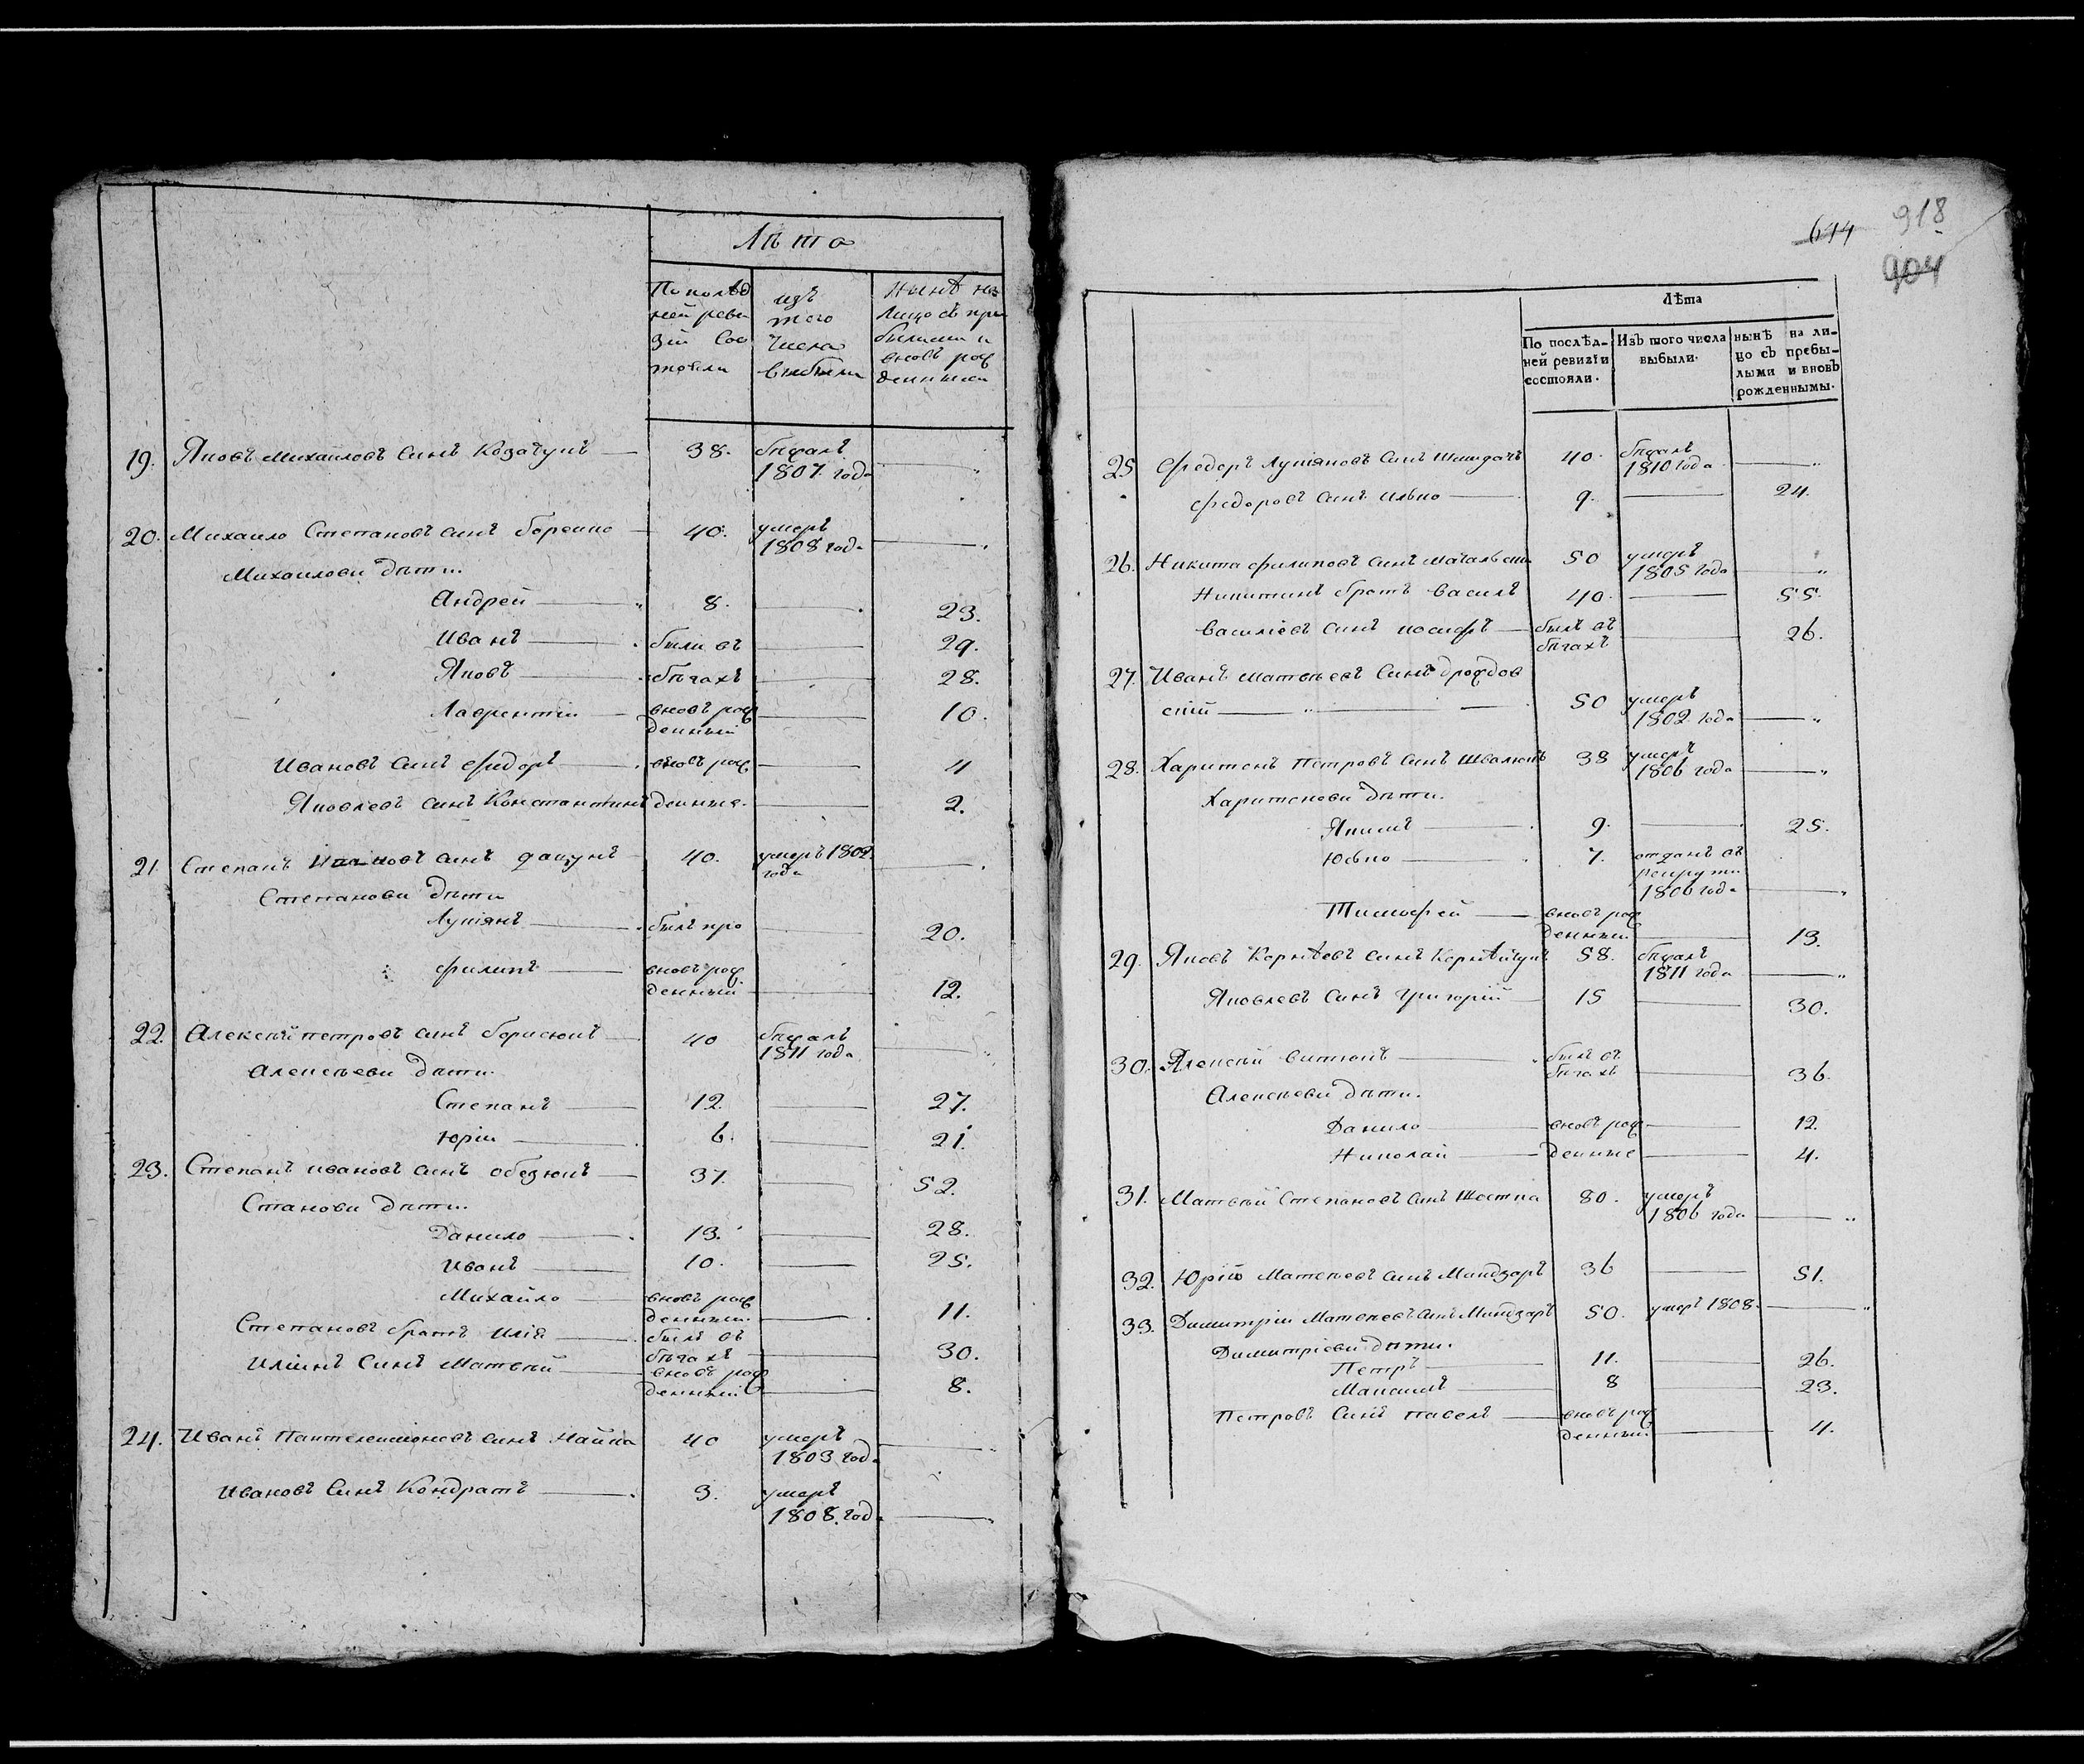 Лѣта
По послѣд
ней реви
зіи Сос
тояли
изъ
того
числа
выбыли
нынѣ на
лицо съ при
былыми и
вновь рож
денными
19. Яковъ Михайловъ Синъ Козачукъ 38. бѣжалъ
1807. года
20. Михайло Степановъ синъ 40. умеръ
1808 года
Михайлови дѣти.
Андрей 8. 23.
Иванъ были въ 29.
Яковъ бѣгахъ 28.
Лаврентій вновь рож 10.
денный
Ивановъ Синъ Федоръ вновь рож 4
Яковлевъ синъ Константинъ денные. 2.
21. Степанъ синъ 40. умеръ 1802.
года
Степанови дѣти
Лукіянъ былъ про 20.
Филипъ вновь рож
денный 12.
22. Алексѣй петровъ синъ борисюкъ 40 бѣжалъ
1811 года
Алексѣеви дѣти.
Степанъ 12. 27.
Юрій 6. 21.
23. Степанъ ивановъ синъ обезюкъ 37. 52.
Станови дѣти.
Данило 13. 28.
Иванъ 10. 25.
Михайло вновь рож
денный 11.
Степановъ братъ Илія былъ въ
бѣгахъ 30.
Иліинъ Синъ Матвѣй вновь рож
денный 8.
24. Иванъ Пантелеимоновъ синъ 40 умеръ
1803 года
Ивановъ Синъ Кондратъ 3. умеръ
1808. года
614 918
904
Лѣта
По послѣд-
ней ревизіи
состояли.
Изъ того числа
выбыли.
нынѣ на ли-
цо съ пребы-
лыми и вновь
рожденнымы.
25 Федоръ Лукіяновъ Синъ 40. бѣжалъ
1810 года
Федоровъ Синъ Илько 9. 24.
26. Никита Филиповъ Синъ 50 умеръ
1805 года
Никитинъ братъ Василь 40. 55.
Василіевъ Синъ иосифъ былъ въ 26.
бѣгахъ
27. Иванъ Матвѣевъ Синъ Дрождов
скій 50 умеръ
1802 года
28. Харитонъ Петровъ Синъ 38 умеръ
1806 года
Харитонови дѣти.
Якимъ 9. 25.
Юсько 7. отданъ въ
рекруты
1806 года
Тимофей вновь рож
денный 13.
29. Яковъ Корнѣевъ Синъ Корнѣйчукъ 58. бѣжалъ
1811 года
Яковлевъ Синъ Григорій 15 30.
30. Алексѣй былъ въ
бѣгахъ 36.
Алексѣеви дѣти.
Данило вновь рож 12.
Николай денные 4.
31. Матвѣй Степановъ Синъ Шостка 80. умеръ
1806 года
32. Юрій Матвѣевъ синъ Миндзаръ 36 51.
33. Димитрій Матвѣевъ Синъ Миндзаръ 50. умеръ 1808.
Димитріеви дѣти.
Петръ 11. 26.
Максимъ 8 23.
Петровъ Синъ павелъ вновь рож
денный 4.